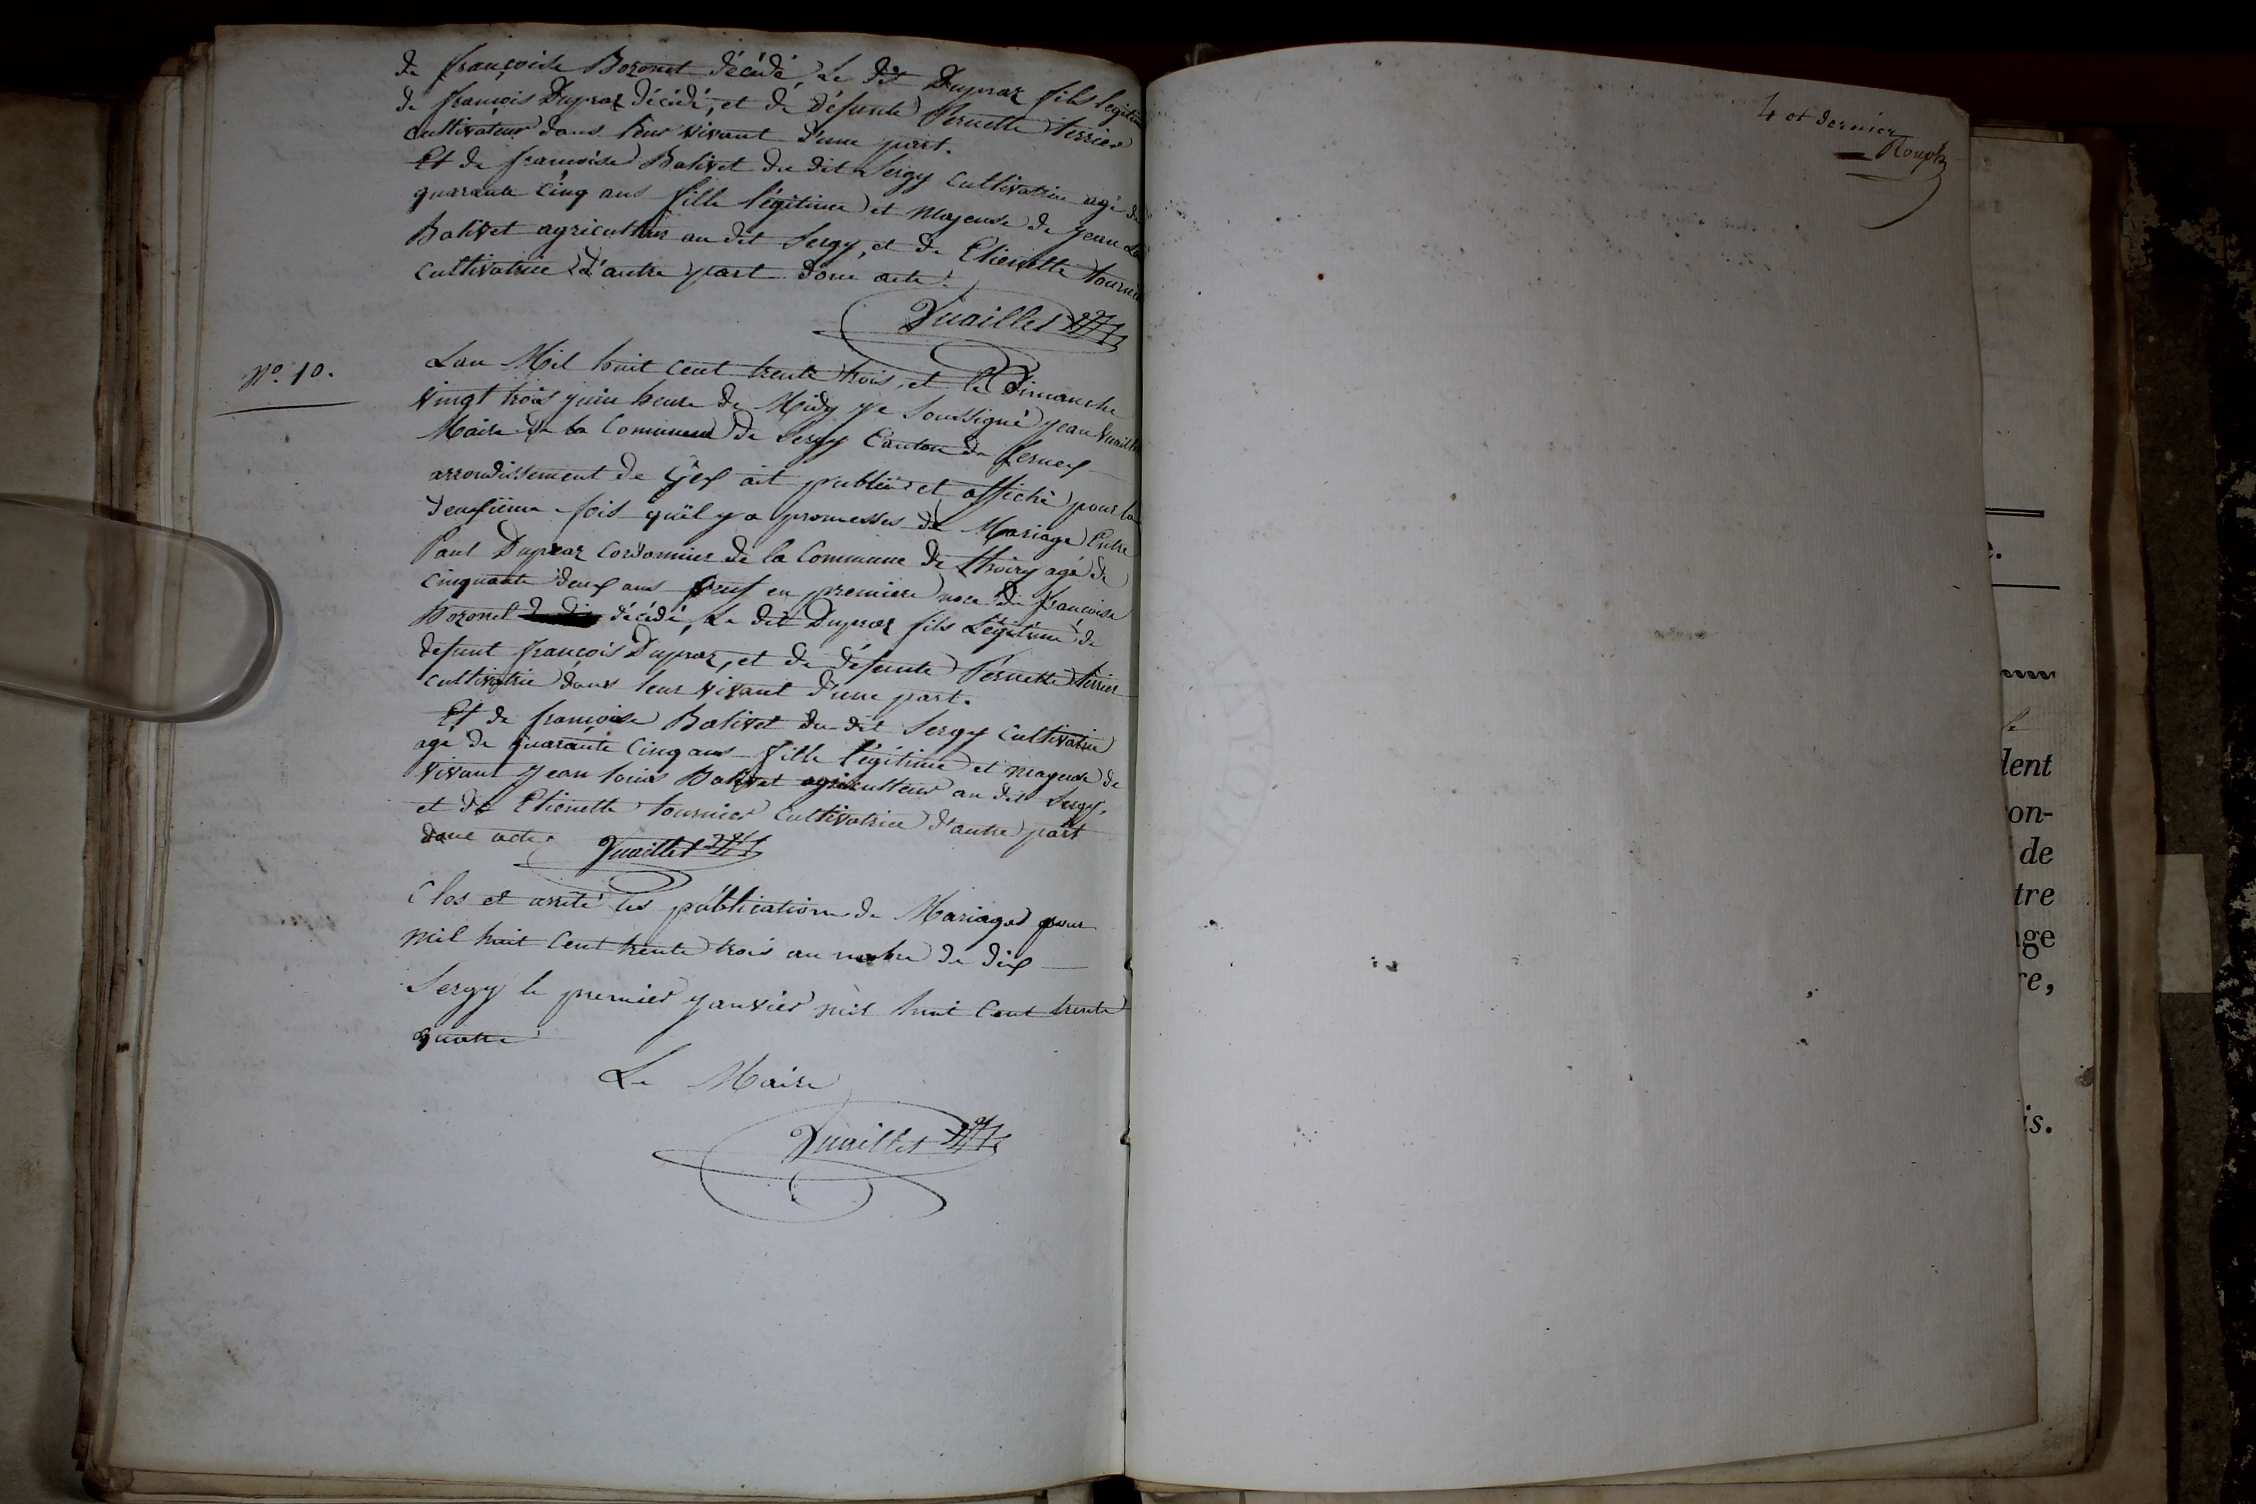 de françoise Bozonet décédé Le dit Dupraz fils legitim
de françois Dupraz décédé, et de défunte Pernette terrier
cultivateur dans leur vivant d'une part.
Et de françoise Balivet du dit Sergy cultivatrice agé de
quarante cinq ans fille légitime et Majeuse de Jean
Balivet agriculteur au dit Sergy, et de Etienette tournier
cultivatrice d'autre part donc acte.
Vuaillet
Nº. 10.
Lan Mil huit cent trente trois, et le Dimanche
vingt trois juin heure de Midy je soussigné Jean Vuaillet
Maire de la Commune de Sergy Canton de ferney
arrondissement de Gex ait publié et affiché pour la
deuxième fois quil y a promesses de Mariage Entre
Paul Dupraz Cordonnier de la Commune de thoiry agé de
cinquante deux ans veuf en première noce de françoise
Bozonet décédé, Le dit Dupraz fils Légitime de
défunt françois Dupraz, et de défunte Pernette terrier
cultivatrice dans leur vivant d'une part.
Et de françoise Balivet du dit Sergy Cultivatrice
agé de quarante cinq ans fille légitime et Majeuse de
vivant Jean louis Balivet agriculteur au dit Sergy,
et de Etienette tournier cultivatrice d'autre part
donc acte. Vuaillet
Clos et arrêté les publications de Mariages pour
Mil huit Cent trente trois au nombre de dix
Sergy le premier Janvier mil huit Cent trente
quatre
Le Maire
Vuaillet
4 et dernier
Rouph
e.
le
dent
on-
de
tre
age
re,
is.